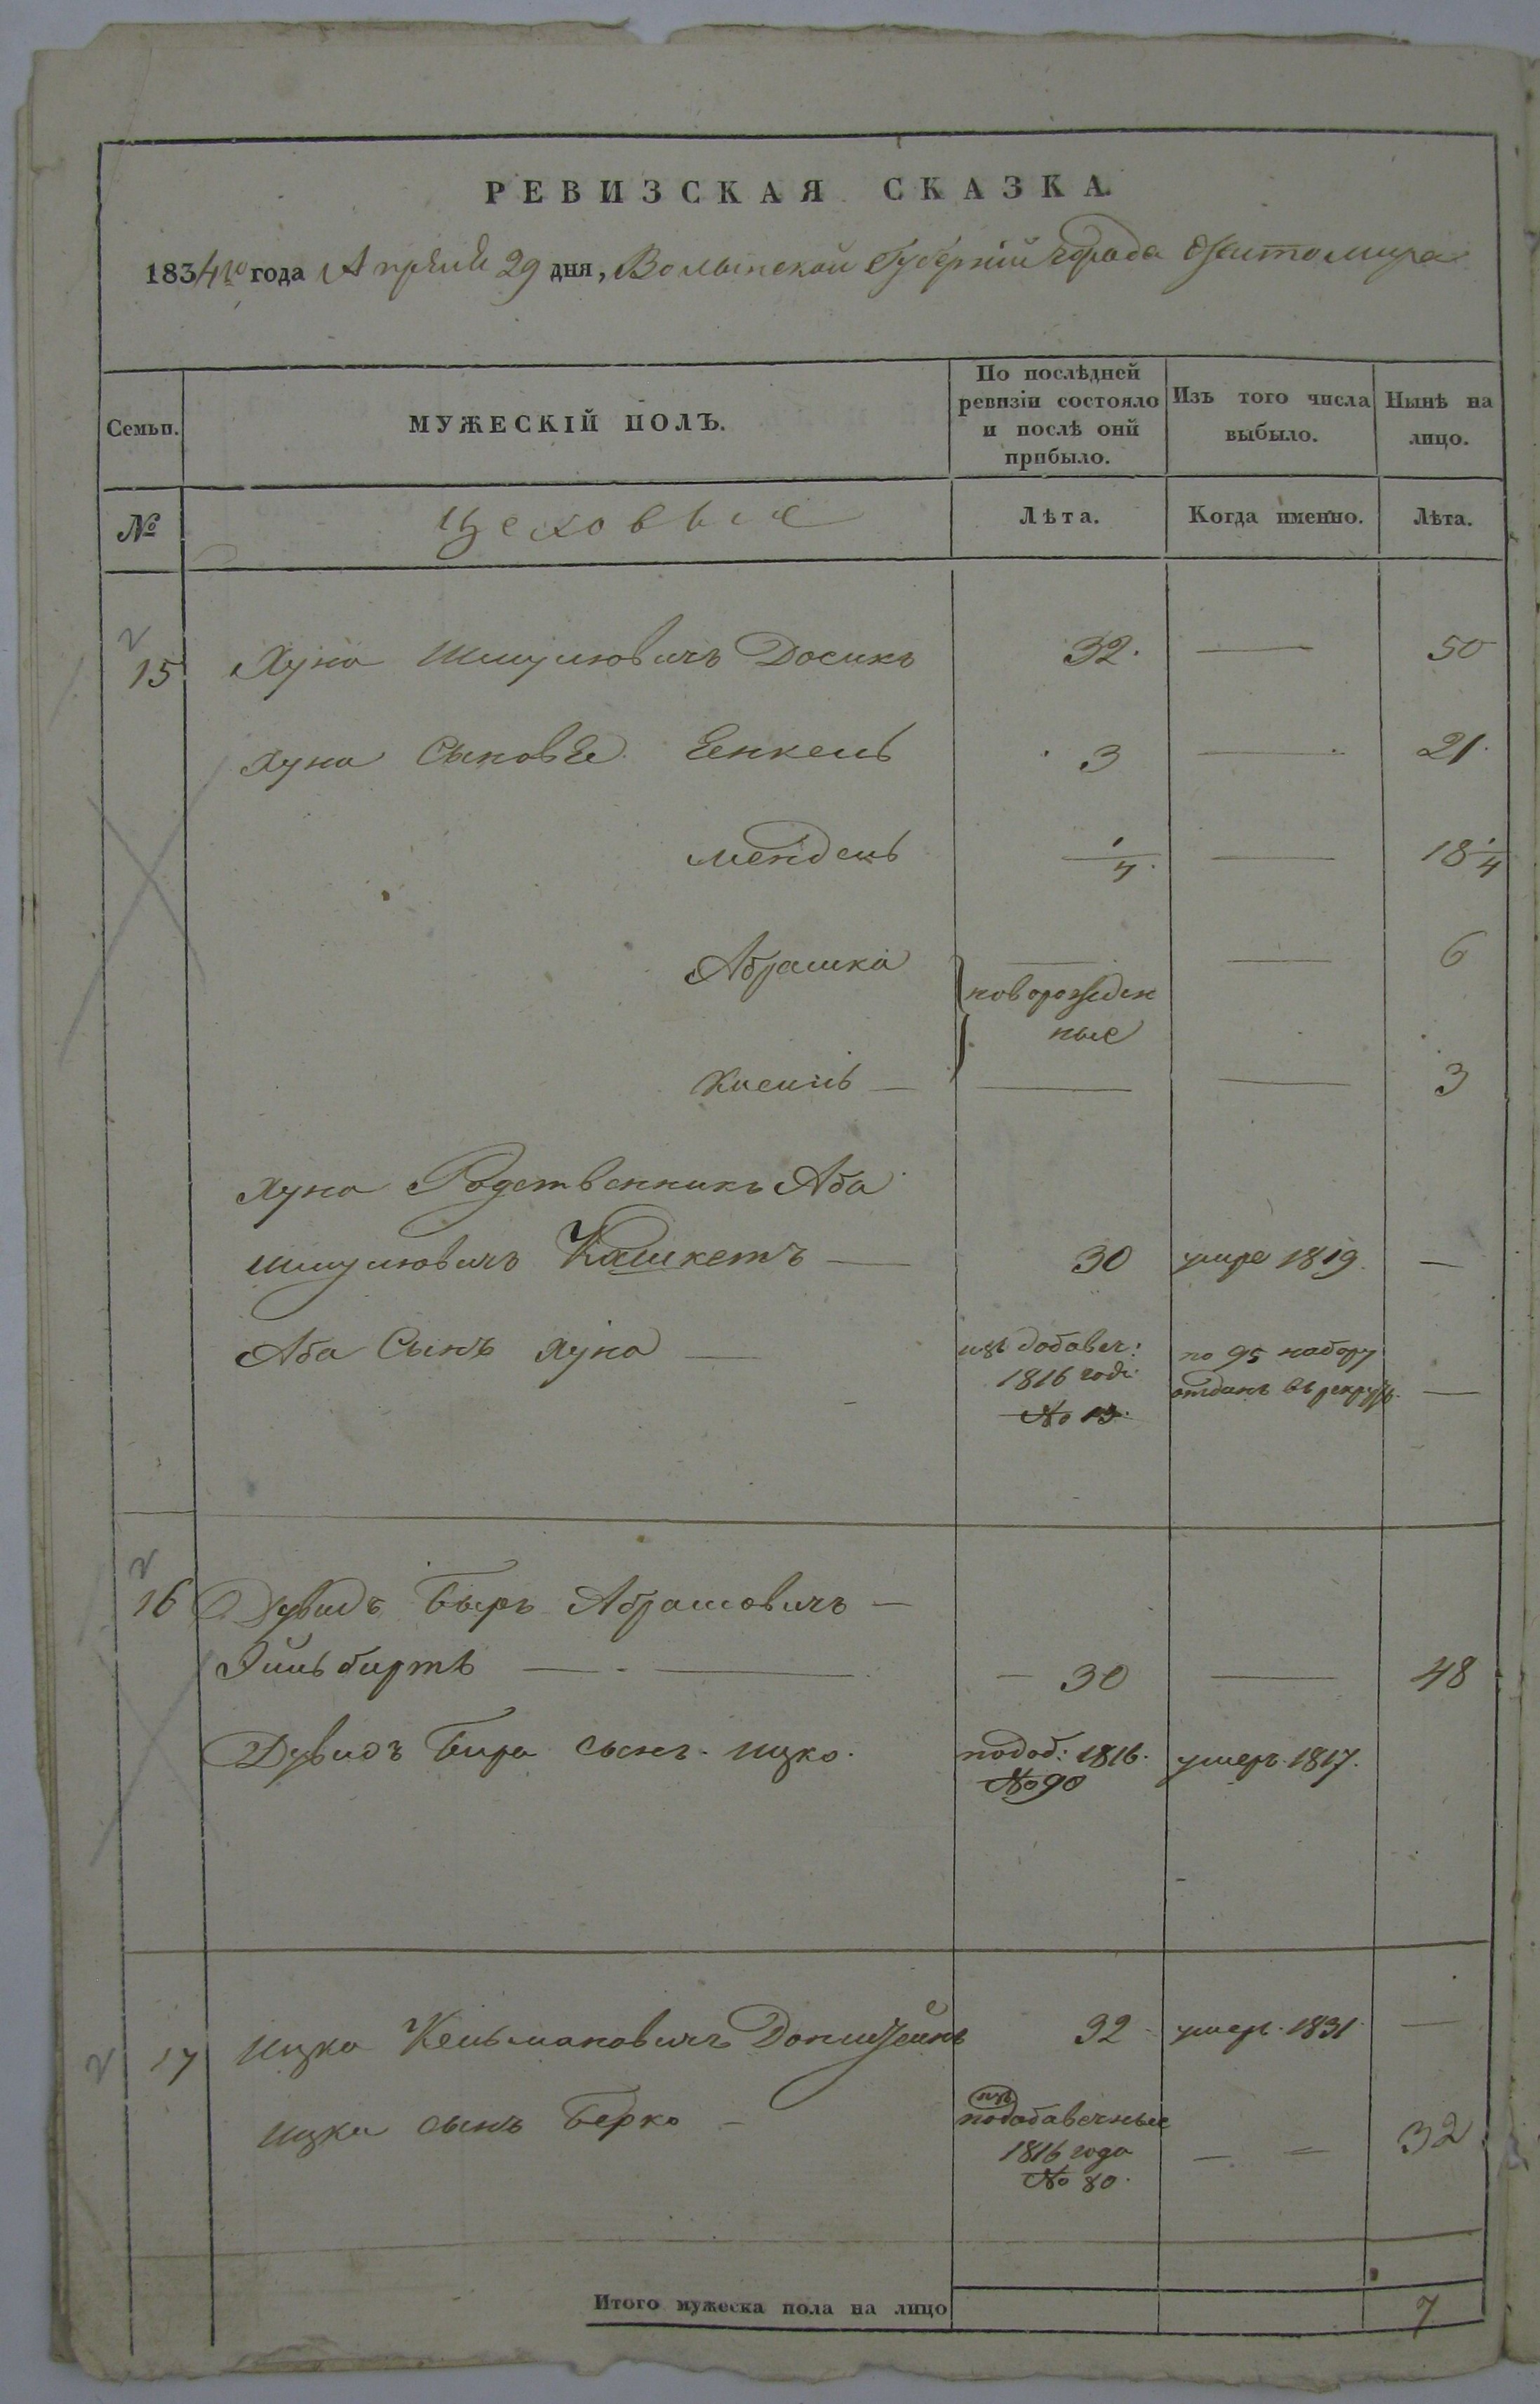 РЕВИЗСКАЯ СКАЗКА.
1834го года Апреля 29 дня, Волынской Губерніи города Житомира
Семьи.
МУЖЕСКІЙ ПОЛЪ.
По послѣдней ревизіи состояло и послѣ оной прибыло.
Изъ того числа выбыло.
Нынѣ на лицо.
№
Цеховые
Лѣта.
Когда именно.
Лѣта.
15 Хуна Шмулювичъ Досикъ 32. — 50
Хуна Сыновье Еенкель 3 — 21.
Мендель 1/4. — 18 1/4
Абрашка — — 6
новорожден
ные
Кисиль — — — 3
Хуна Родственникъ Аба
Шмулювичъ Кашкетъ — 30 умре 1819. —
Аба Сынъ Хуна — изъ добавоч: по 95 набору
1816 год: отданъ въ рекруты. —
№ 13.
16 Дувидъ Беръ Абрамовичъ —
— — 30 — 48
Дувидъ Бира сынъ Ицко. подоб: 1816. умеръ 1817.
№ 90
17 Ицка Кельмановичъ 32 умеръ 1831 —
изъ
Ицка сынъ Берко — подобавочные
1816 года — = 32
№ 80.
Итого мужеска пола на лицо 7